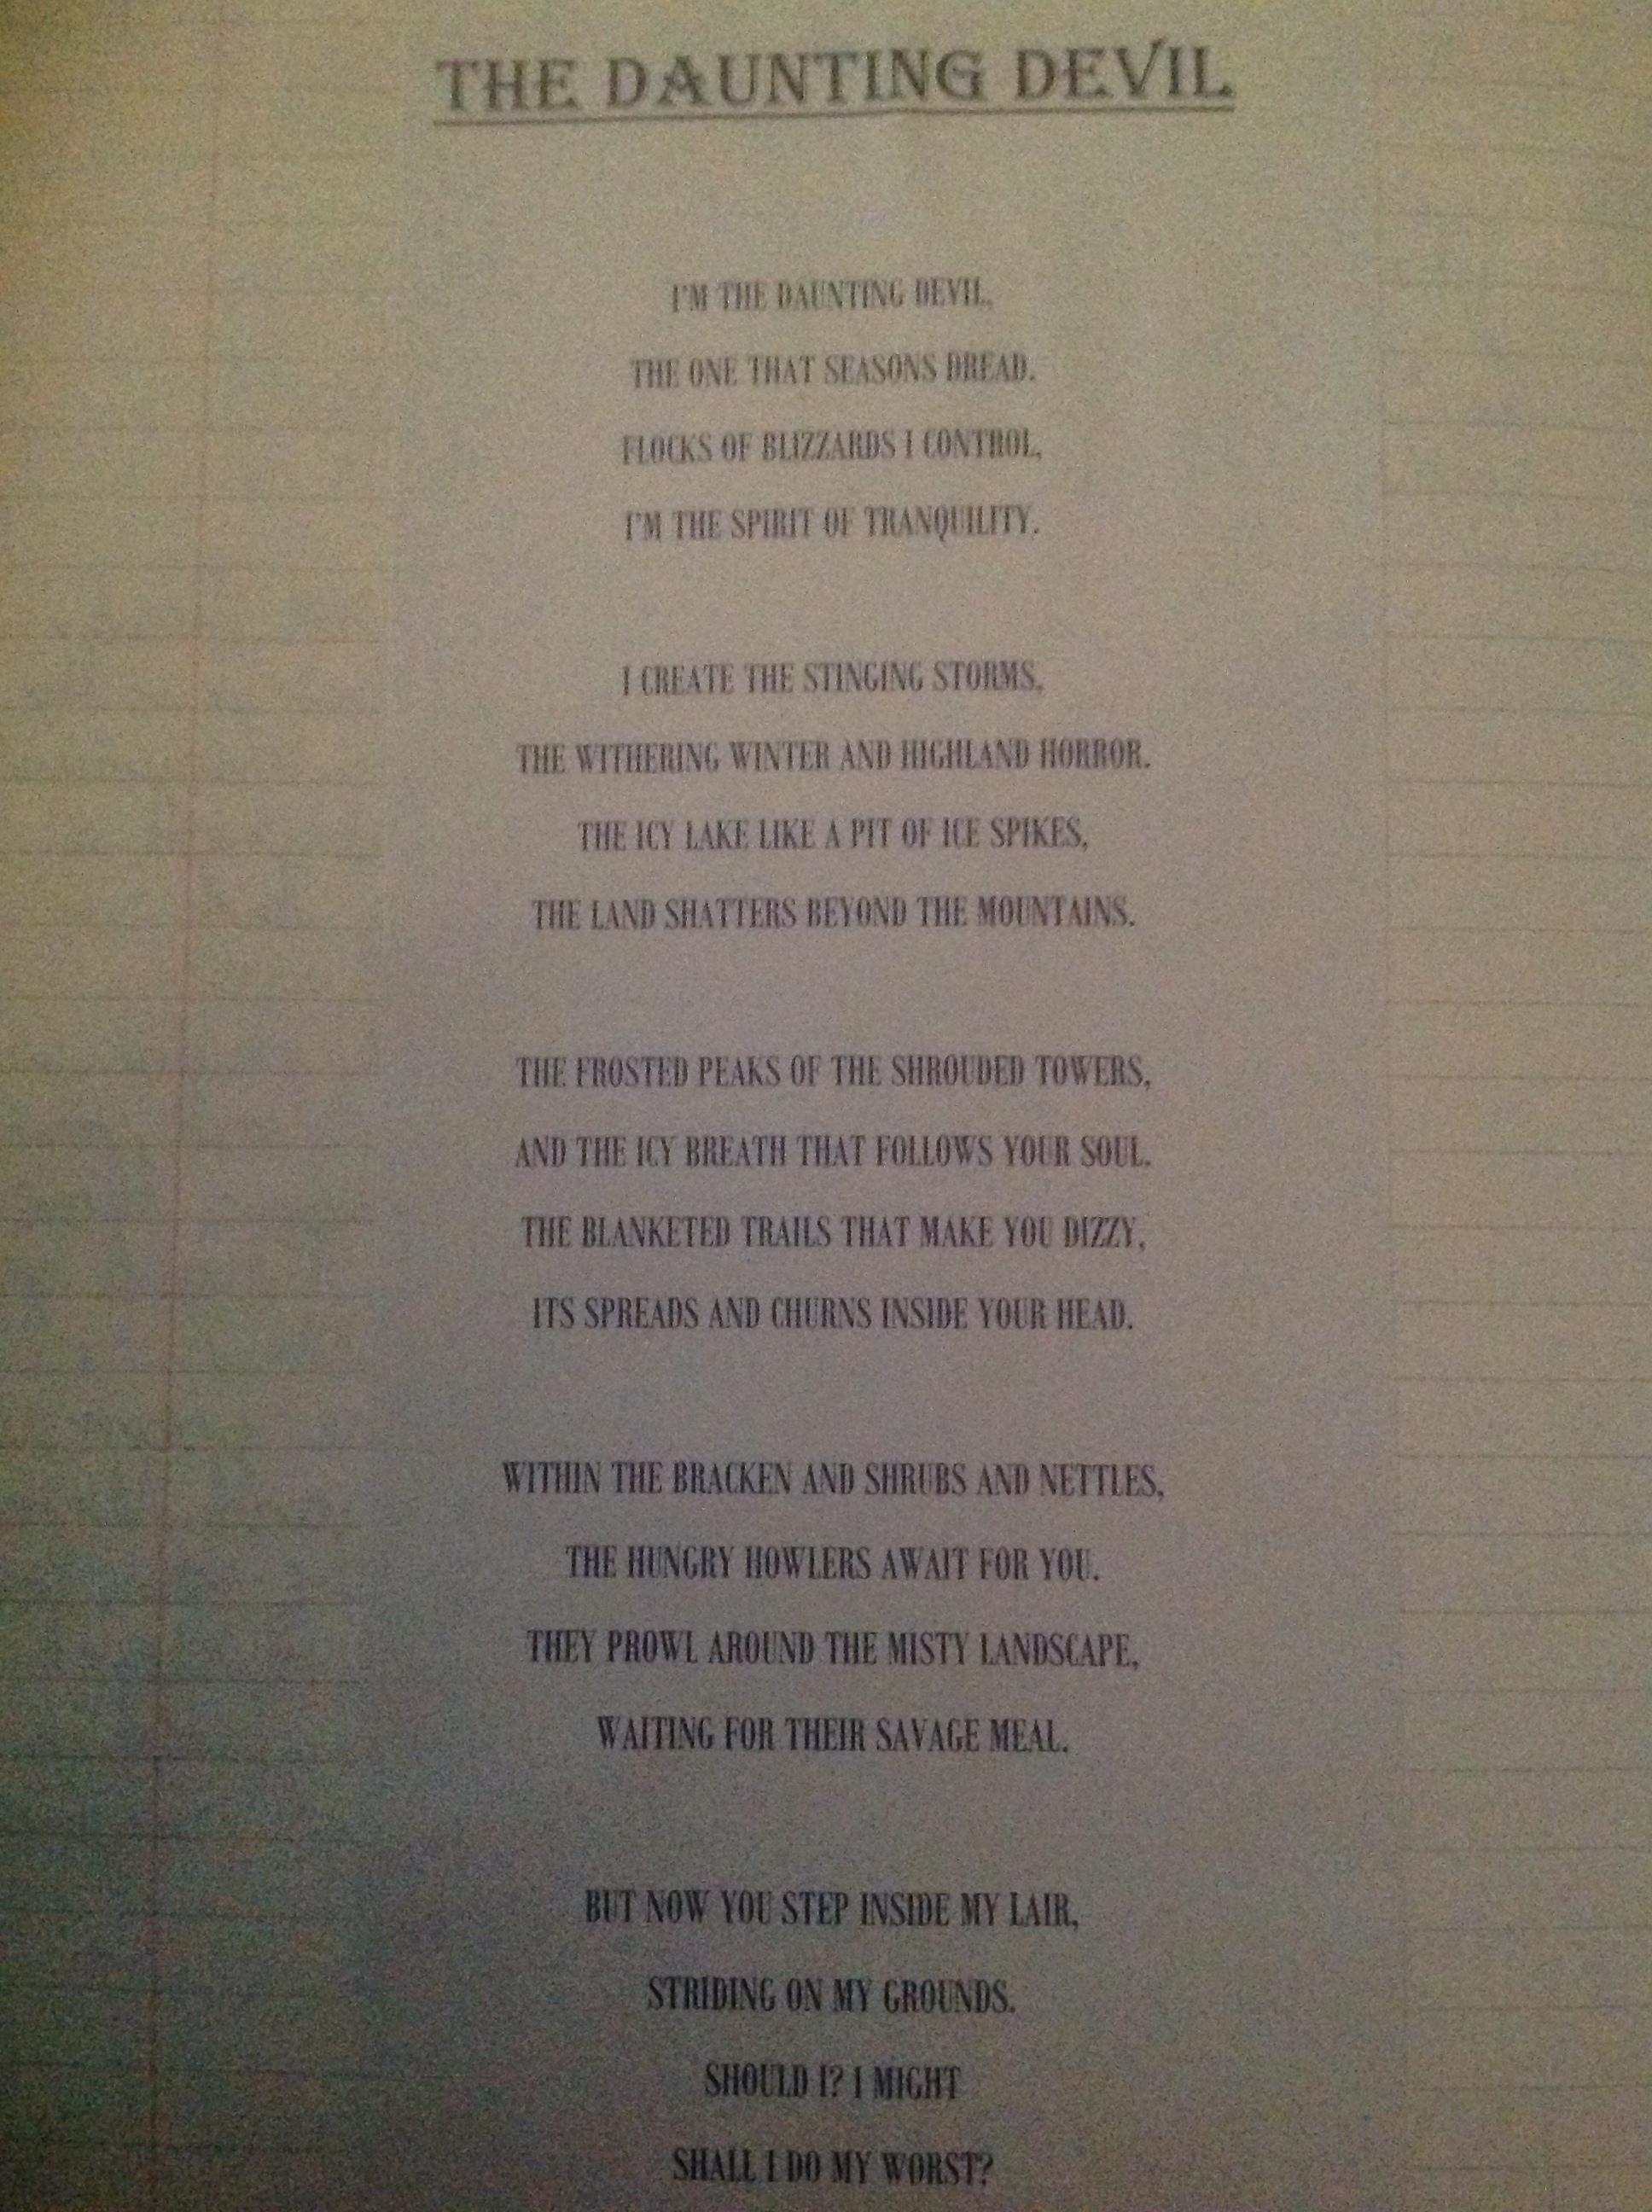 THE DAUNTING DEVIL
I'M THE DAUNTING DEVIL,
THE ONE THAT SEASONS DREAD.
FLOCKS OF BLIZZARDS I CONTROL,
I'M THE SPIRIT OF TRANQUILITY.
I CREATE THE STINGING STORMS,
THE WITHERING WINTER AND HIGHLAND HORROR.
THE ICY LAKE LIKE A PIT OF ICE SPIKES,
THE LAND SHATTERS BEYOND THE MOUNTAINS.
THE FROSTED PEAKS OF THE SHROUDED TOWERS,
AND THE ICY BREATH THAT FOLLOWS YOUR SOUL.
THE BLANKETED TRAILS THAT MAKE YOU DIZZY,
ITS SPREADS AND CHURNS INSIDE YOUR HEAD.
WITHIN THE BRACKEN AND SHRUBS AND NETTLES,
THE HUNGRY HOWLERS AWAIT FOR YOU.
THEY PROWL AROUND THE MISTY LANDSCAPE,
WAITING FOR THEIR SAVAGE MEAL.
BUT NOW YOU STEP INSIDE MY LAIR,
STRIDING ON MY GROUNDS.
SHOULD I? I MIGHT
SHALL I DO MY WORST?